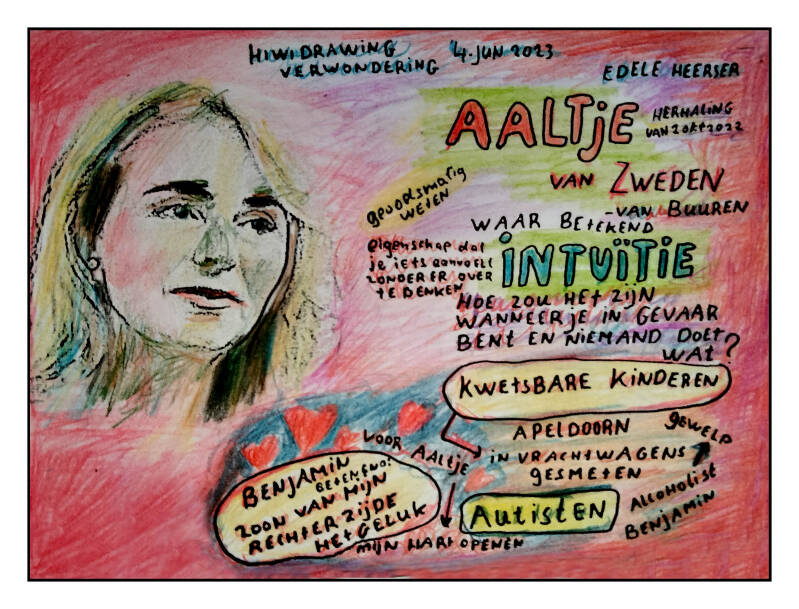 HIWIDRAWING 4.JUN 2023
VERWONDERING
EDELE HEERSER
AALTJE
HERHALING
VAN 2 OKT 2022
VAN ZWEDEN
-VAN BUUREN
gevoelsmatig
WETEN
WAAR BETEKEND
INTUÏTIE
eigenschap dat
je iets aanvoelt
ZONDER ER OVER
TE DENKEN
HOE ZOU HET ZIJN
WANNEER JE IN GEVAAR
BENT EN NIEMAND DOET
WAT?
KWETSBARE KINDEREN
APELDOORN
IN VRACHTWAGENS
GESMETEN
GEWELD
ALCOHOLIST
BENJAMIN
AUTISTEN
VOOR AALTJE
MIJN HART OPENEN
BENJAMIN
ZOON VAN MIJN
RECHTER ZIJDE
HET GELUK